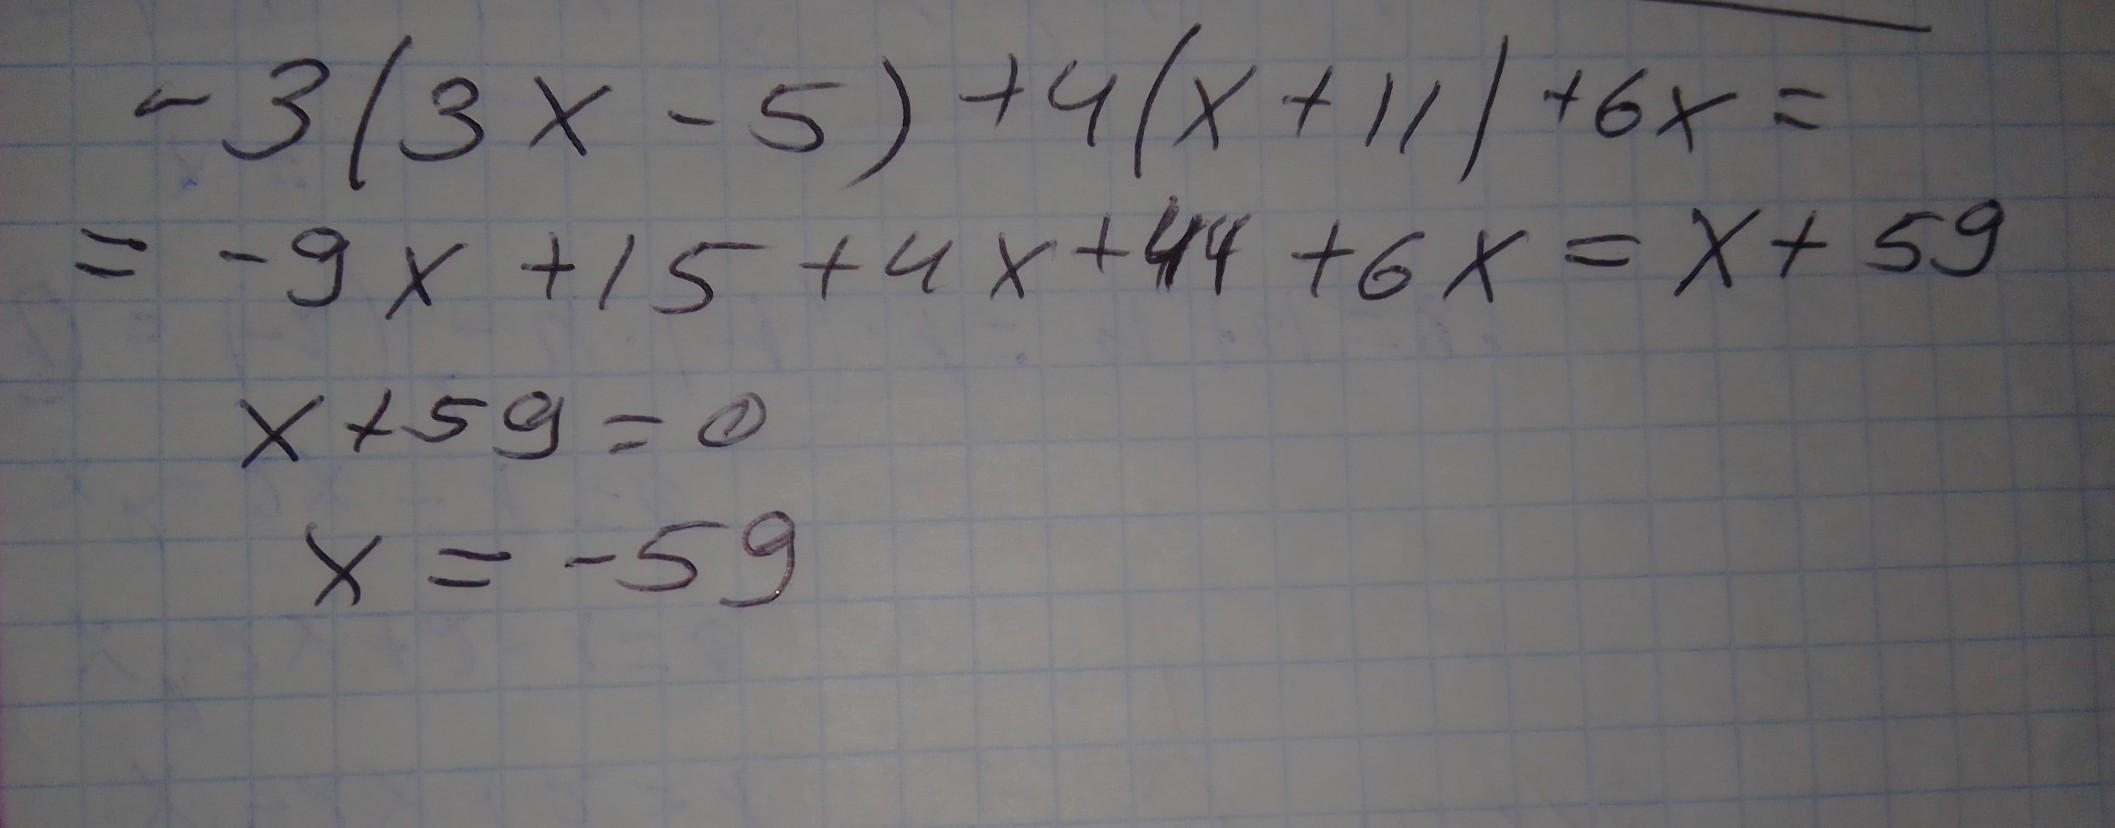 -3(3x-5)+4(x+11)+6x=
=-9x+15+4x+44+6x=x+59
x+59=0
x=-59